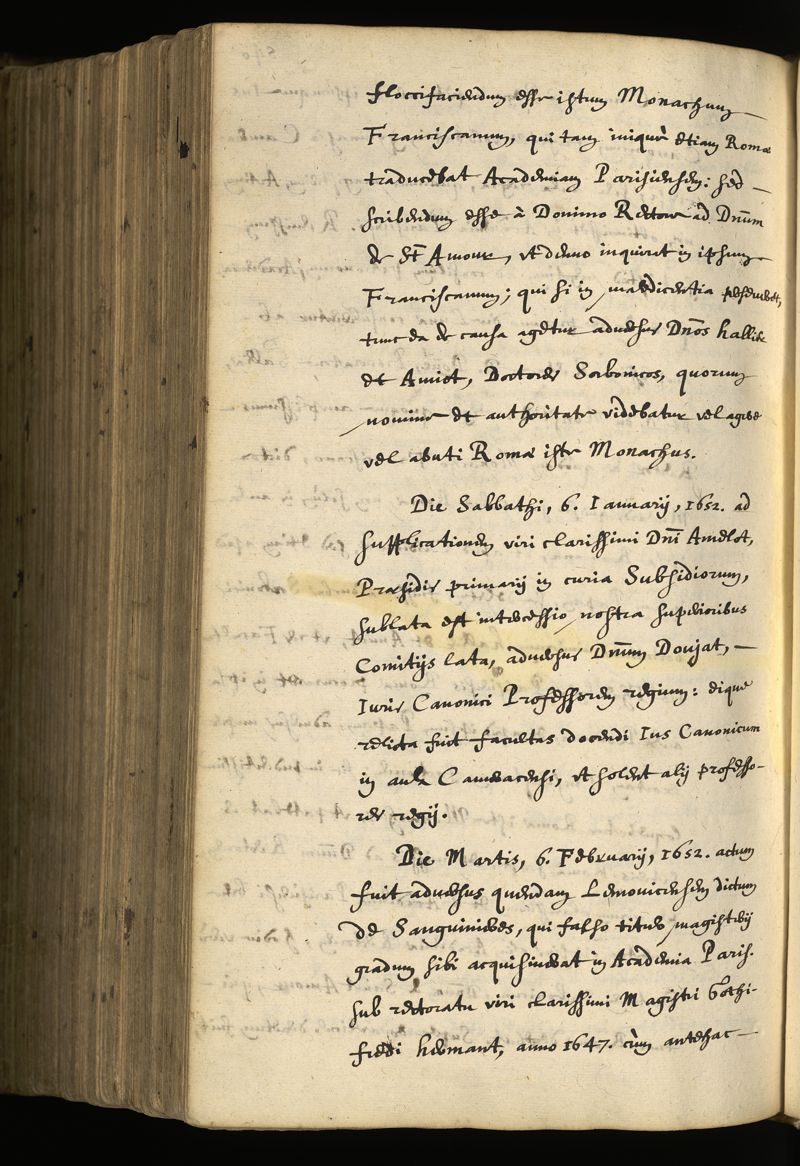 floccifaciendum esse istum Monachum
Franciscanum, qui tam iniquè etiam Romæ
traducebat Academiam Parisiensem: sed
scribendum esse à Domino Rectore ad Dnũm
de St Amour, vt denuo inquirat in ipsum
Franciscanum; qui si in maledicentia perseueret,
tunc ea de causa agetur aduersus Dnõs hallier
et Amiot, Doctores Sorbonicos, quorum
nomine et authoritate videbatur vel agere
vel abuti Romæ iste Monachus.
Die Sabbathi, 6. Ianuarij, 1652. ad
supplicationem viri clarissimi Dnĩ Amelot,
Præsidis primarij in curia Subsidiorum,
sublata est intercessio nostra superioribus
Comitijs lata, aduersus Dnũm Doujat,
Iuris Canonici Professorem regium: eique
relicta fuit facultas docendi Ius Canonicum
in aula Cameracensi, vt solent alij professo-
res regij.
Die Martis, 6. Februarij, 1652. actum
fuit aduersus quendam Lemouicensem dictum
de Sanguinieres, qui falso titulo magisterij
gradum sibi acquisiuerat in Academia Paris.
sub rectoratu viri clarissimi Magistri Gothi-
fredi hermant, anno 1647. cùm antehac